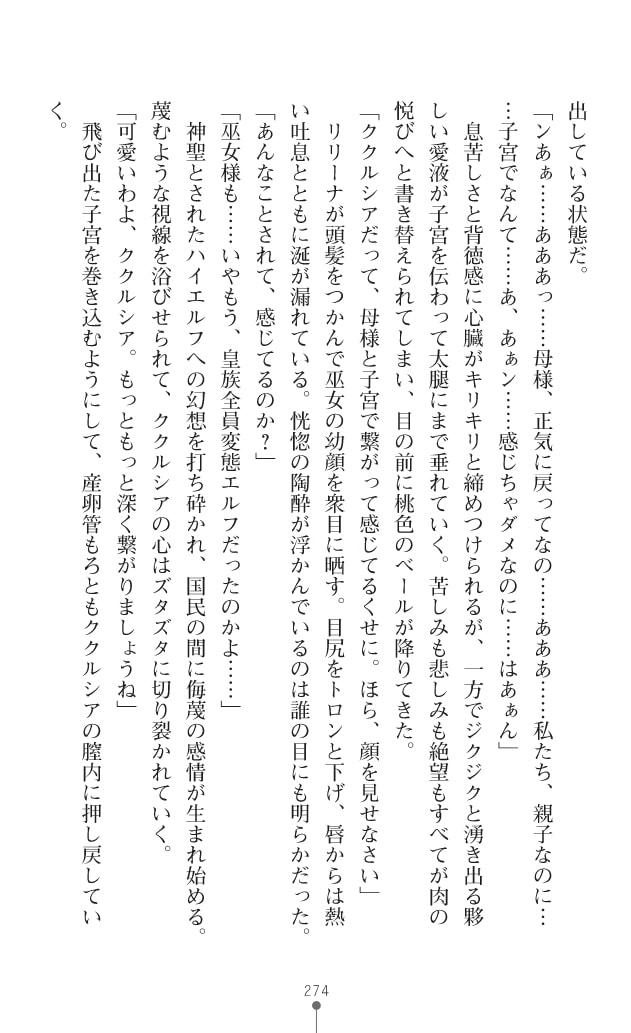 出している状態だ。
「ンあぁ……あああっ……母様、正気に戻ってなの……あああ……私たち、親子なのに…
…子宮でなんて……あ、あぁン……感じちゃダメなのに……はあぁん」
息苦しさと背徳感に心臓がキリキリと締めつけられるが、一方でジクジクと湧き出る夥
しい愛液が子宮を伝わって太腿にまで垂れていく。苦しみも悲しみも絶望もすべてが肉の
悦びへと書き替えられてしまい、目の前に桃色のベールが降りてきた。
「ククルシアだって、母様と子宮で繋がって感じてるくせに。ほら、顔を見せなさい」
リリーナが頭髪をつかんで巫女の幼顔を衆目に晒す。目尻をトロンと下げ、唇からは熱
い吐息とともに涎が漏れている。恍惚の陶酔が浮かんでいるのは誰の目にも明らかだった。
「あんなことされて、感じてるのか？」
「巫女様も……いやもう、皇族全員変態エルフだったのかよ……」
神聖とされたハイエルフへの幻想を打ち砕かれ、国民の間に侮蔑の感情が生まれ始める。
蔑むような視線を浴びせられて、ククルシアの心はズタズタに切り裂かれていく。
「可愛いわよ、ククルシア。もっともっと深く繋がりましょうね」
飛び出た子宮を巻き込むようにして、産卵管もろともククルシアの膣内に押し戻してい
く。
274